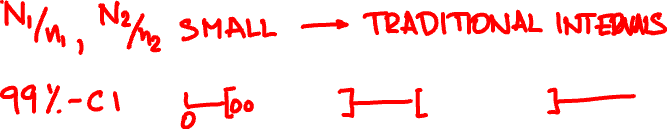 N₁/n₁, N₂/n₂ SMALL → TRADITIONAL INTERVALS
99%-CI 0 [∞ ] [ ]